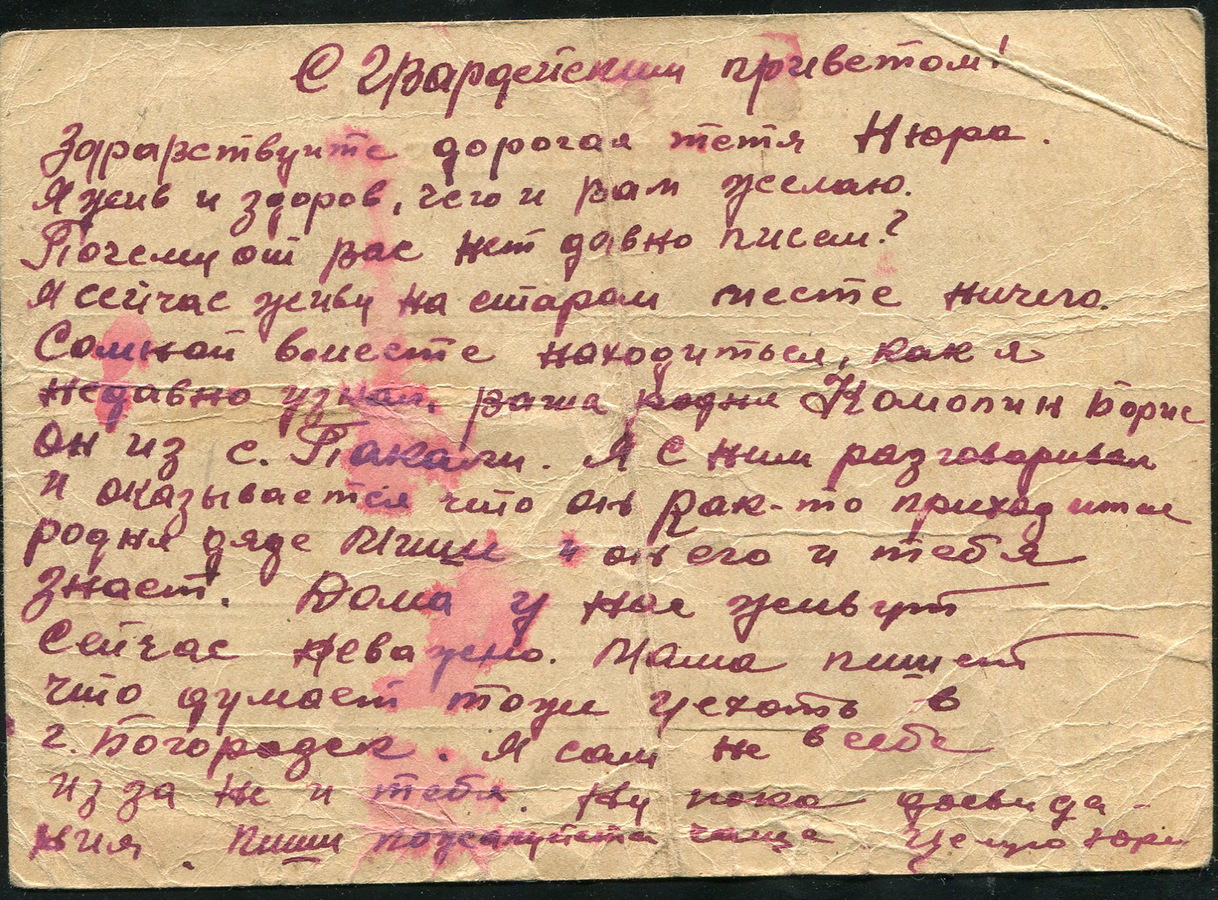 С Гвардейским приветом!
Здравствуйте дорогая тетя Нюра.
Я жив и здоров, чего и вам желаю.
Почему от вас нет давно писем?
Я сейчас живу на старом месте ничего.
Сомной вместе находиться, как я
недавно узнал, ваша родня Комопин Борис
он из с. Пакали. Я с ним разговаривал
и оказывается что он как-то приходится
родня дяде Миши и он его и тебя
знает. Дома у нас живут
сейчас неважно. Мама пишет
что думает тоже уехать в
г. Богородск. Я сам не в себе
из за не и тебя. Ну пока досвида-
ния. Пиши пожалуйста чаще. Целую Юрий